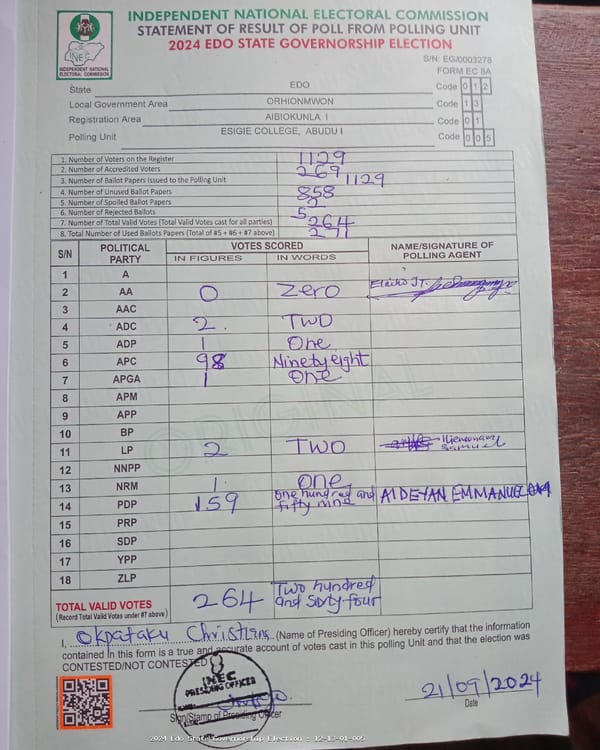 INDEPENDENT NATIONAL ELECTORAL COMMISSION
STATEMENT OF RESULT OF POLL FROM POLLING UNIT
2024 EDO STATE GOVERNORSHIP ELECTION
INEC
INDEPENDENT NATIONAL
ELECTORAL COMMISSION
S/N: EG/0003278
FORM EC 8A
State EDO Code 0 1 2
Local Government Area ORHIONMWON Code 1 3
Registration Area AIBIOKUNLA I Code 0 1
Polling Unit ESIGIE COLLEGE, ABUDU I Code 0 0 5
1. Number of Voters on the Register 1129
2. Number of Accredited Voters 269
3. Number of Ballot Papers Issued to the Polling Unit 1129
4. Number of Unused Ballot Papers 858
5. Number of Spoiled Ballot Papers 2
6. Number of Rejected Ballots 5
7. Number of Total Valid Votes (Total Valid Votes cast for all parties) 264
8. Total Number of Used Ballots Papers (Total of #5 + #6 + #7 above) 271
S/N POLITICAL PARTY VOTES SCORED NAME/SIGNATURE OF POLLING AGENT
IN FIGURES IN WORDS
1 A
2 AA 0 Zero
3 AAC
4 ADC 2 TWO
5 ADP 1 One
6 APC 98 Ninetyeight
7 APGA 1 One
8 APM
9 APP
10 BP
11 LP 2 TWO Samuel
12 NNPP
13 NRM 1 ONE
14 PDP 159 one hundred and fifty nine AIDEYAN EMMANUEL
15 PRP
16 SDP
17 YPP
18 ZLP
TOTAL VALID VOTES 264 Two hundred and Sixty-four
(Record Total Valid Votes under #7 above)
ORIGINAL
I, Okpataku Christian (Name of Presiding Officer) hereby certify that the information
contained in this form is a true and accurate account of votes cast in this polling Unit and that the election was
CONTESTED/NOT CONTESTED
INEC
PRESIDING OFFICER
Sign/Stamp of Presiding Officer
21/09/2024
Date
2024 Edo State Governorship Election - 12-13-01-005